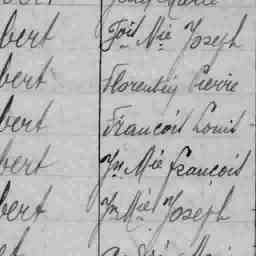 bert Fois Mie Joseph
bert Florentin Pierre
bert François Louis
bert Jn Mie François
bert Jn Mie Joseph